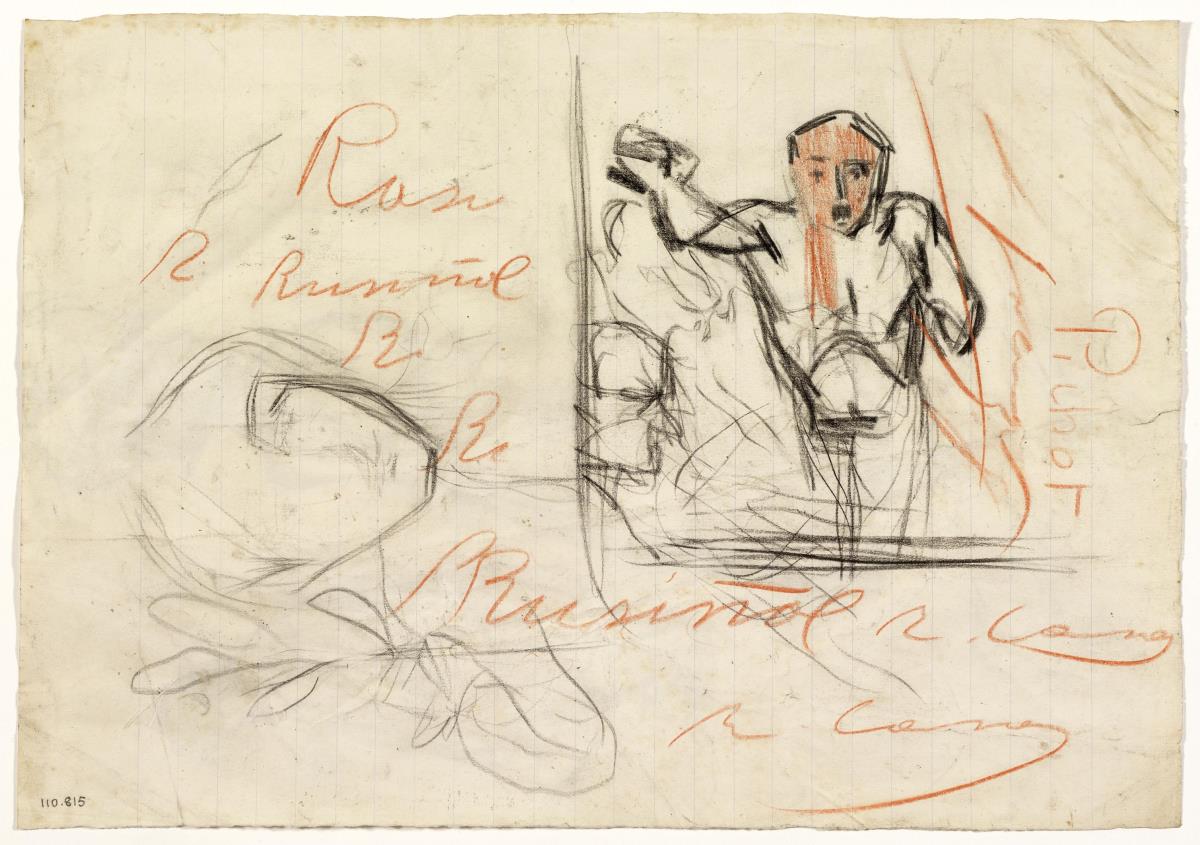 Ros
R
Rusiñol
R
R
Pichot
Rusiñol
R. Casas
R Casas
110.815